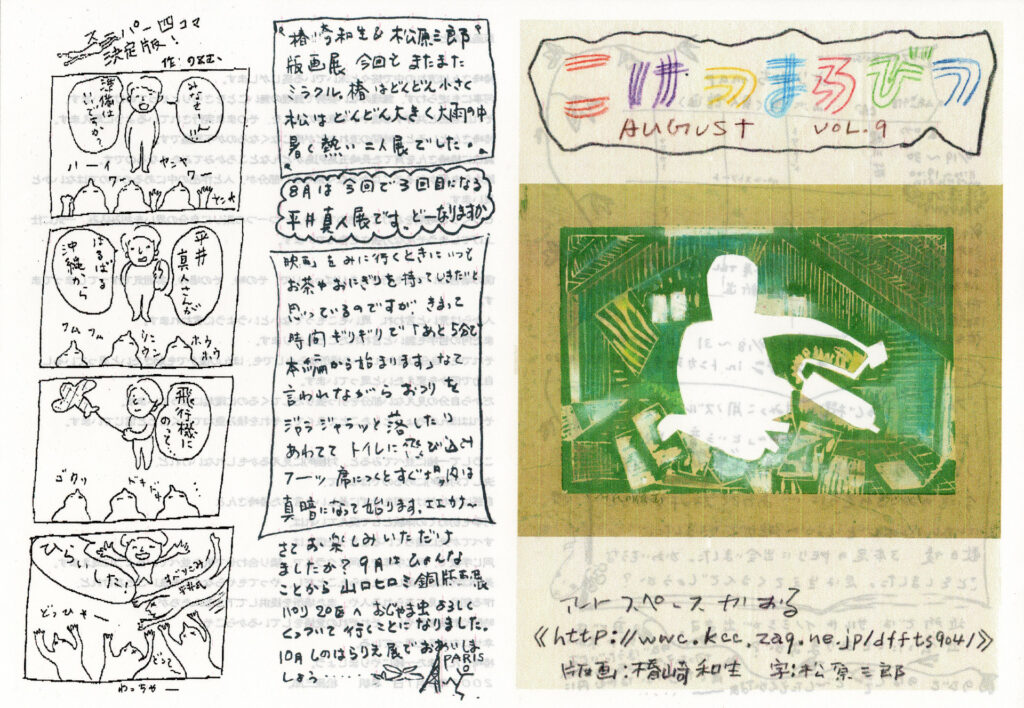 スーパー四コマ
決定版!
作:のぞむ、
みなさん!!
準備は
いいですか?
ハーイ
ワー
ヤンヤ
ワー
ヤンヤ
平井
真人さんが
はるばる
沖縄から
フムフム
ウン
ウン
ホウ
ホウ
飛行機に
のって、
ゴクリ
ドキドキ
ひらい
ました。
どっひゃー
どてっ
わっちゃー
椿崎和生&松原三郎
版画展 今回でまたまた
ミラクル。椿はどんどん小さく
松はどんどん大きく大雨の中
暑く熱い二人展でした。
8月は今回で3回目になる
平井真人展です。どーなりますか
映画をみに行くときにいつ
お茶やおにぎりを持っていきたいと
思っているのですが きまって
時間ギリギリで「あと5分で
本編から始まります」なて
言われながら おつりを
ジャラジャラッと落したり
あわててトイレに飛び込み
フーッ 席につくとすぐ場内は
真暗になって始ります。エエカナ〜
さてお楽しみいただけ
ましたか? 9月はひょんな
ことから 山口ヒロミ銅版画展
パリ20区へ おじゃま虫よろしく
くっついて行くことになりました。
10月しのはらりえ展でおあいしま
しょう・・・・・
PARIS
こけつまろびつ
AUGUST VOL.9
アートスペースかおる
《http://www.kcc.zaq.ne.jp/dffts904/》
版画:椿崎和生 字:松原三郎